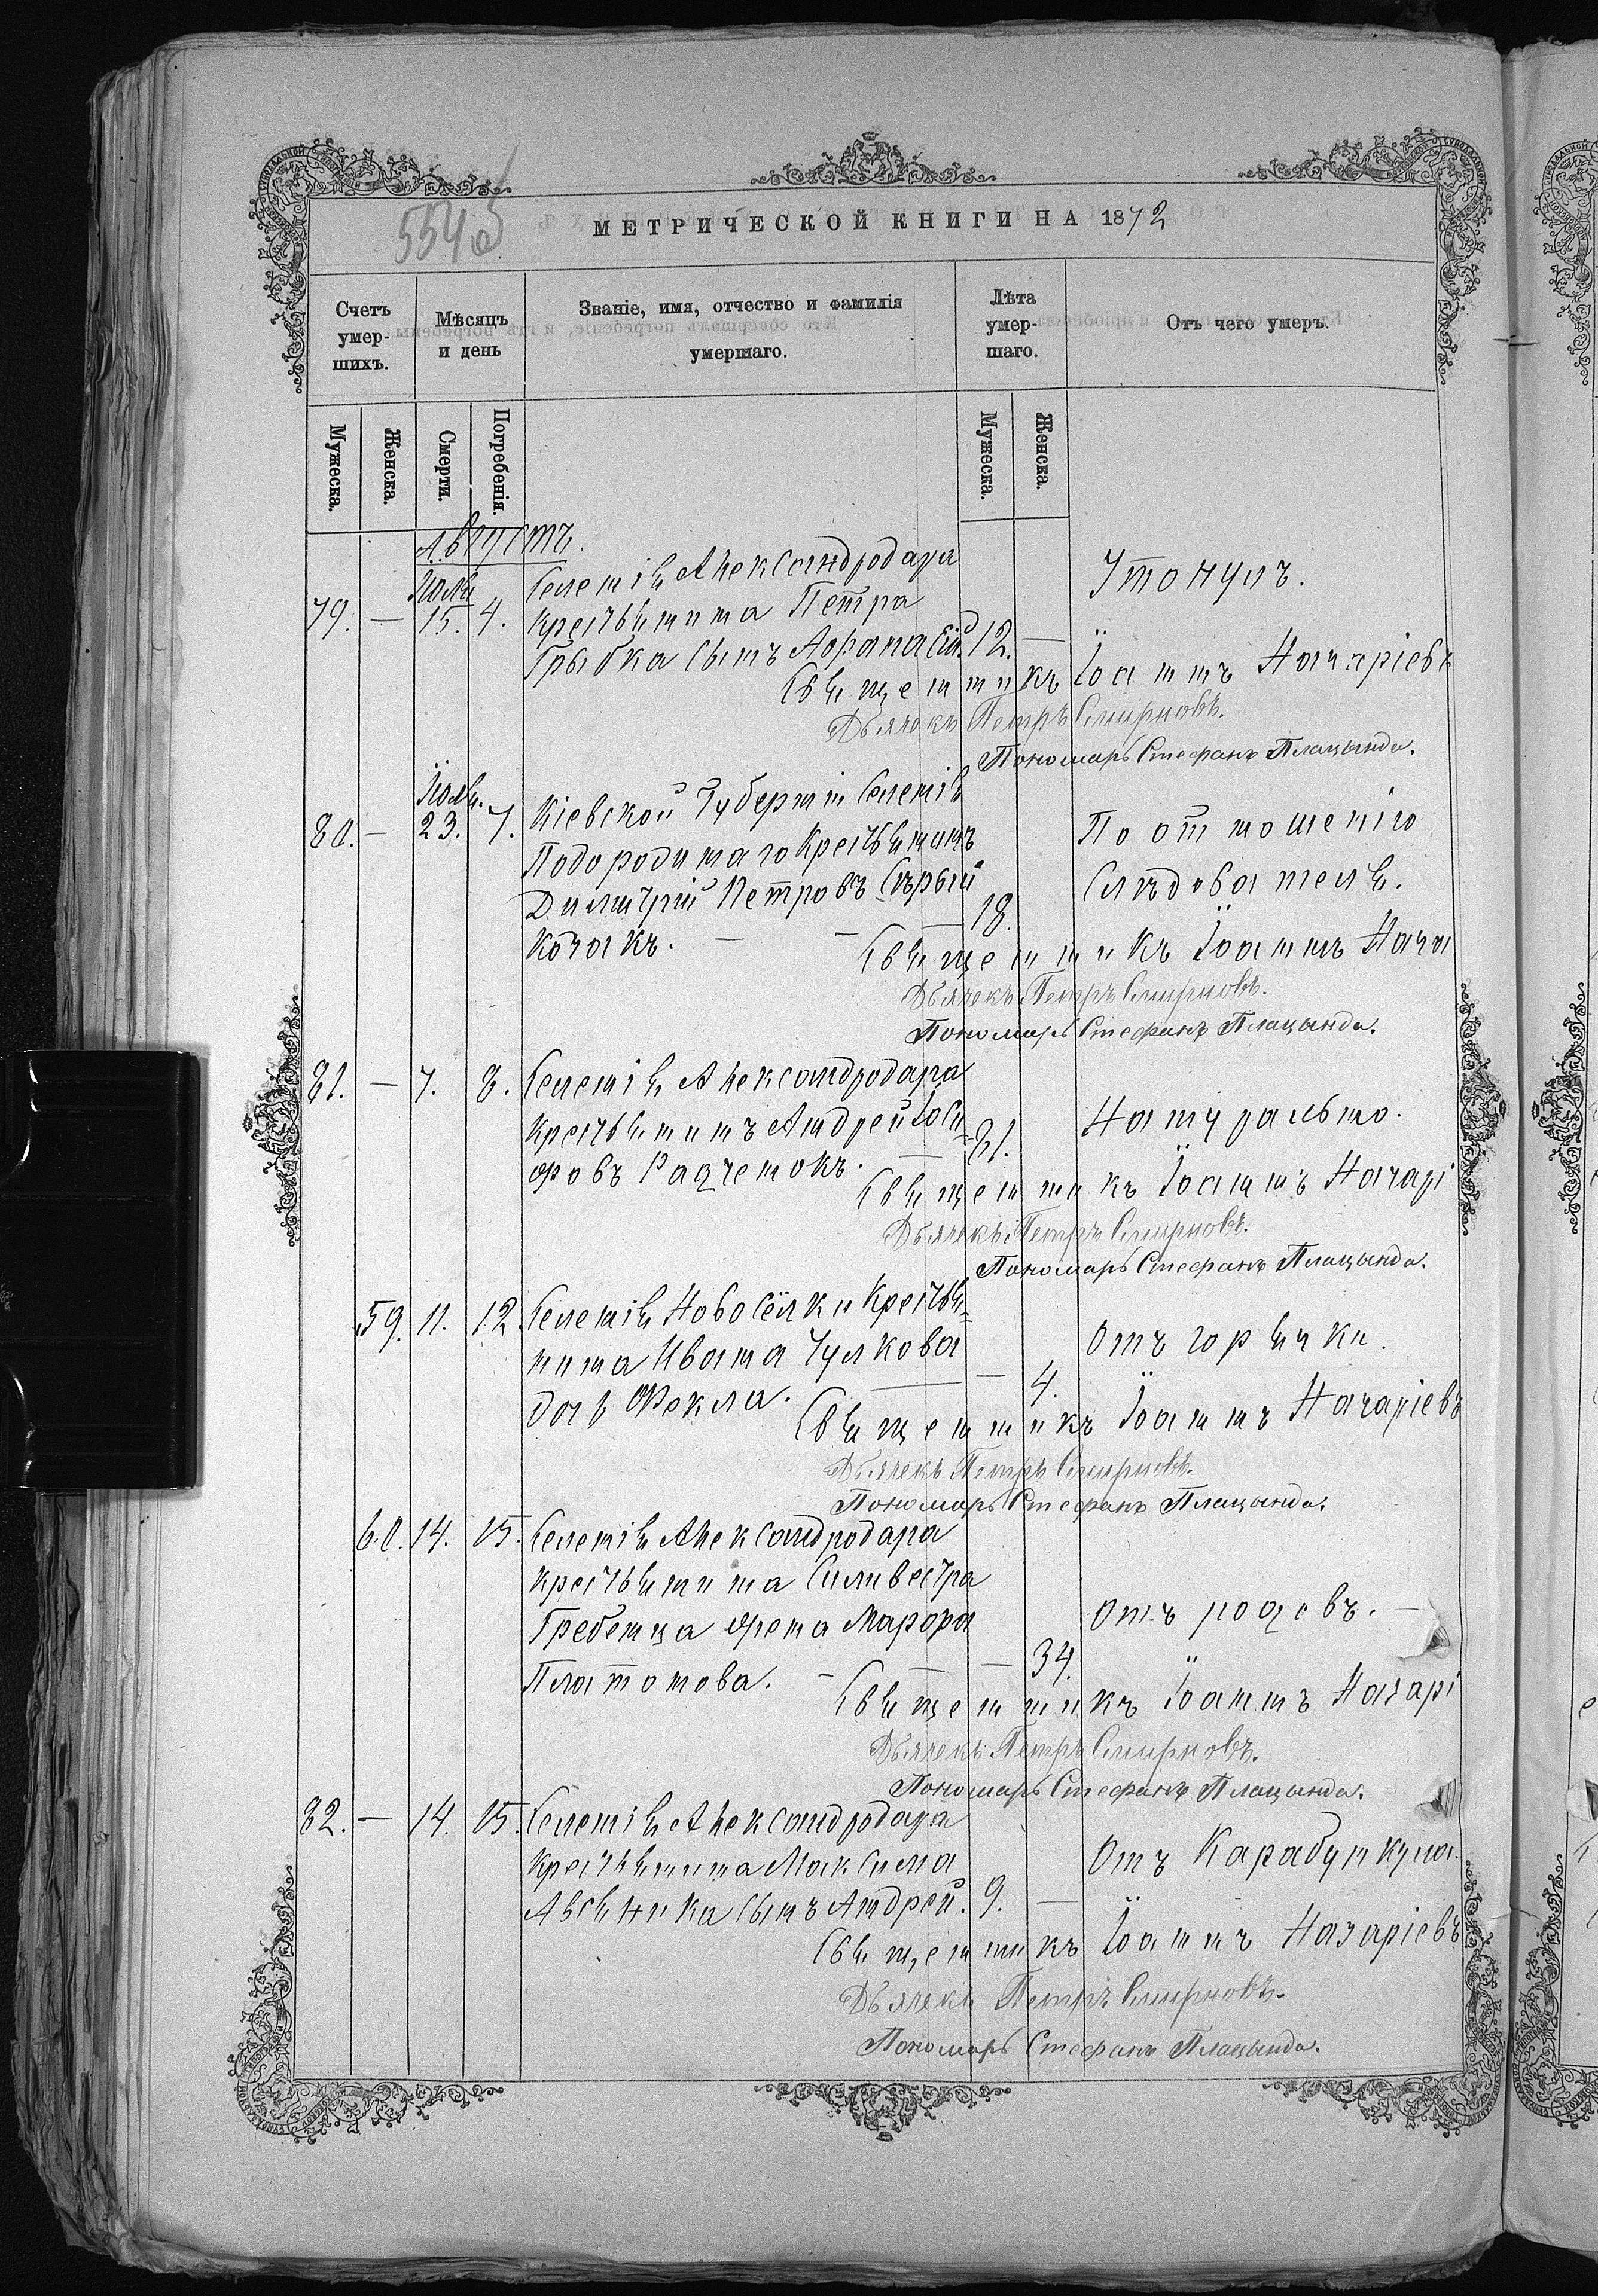 554 об
МЕТРИЧЕСКОЙ КНИГИ НА 1872
Счетъ умер-шихъ.
Мѣсяцъ и день
Званіе, имя, отчество и фамилія умершаго.
Лѣта умер-шаго.
Отъ чего умеръ.
Мужеска.
Женска.
Смерти.
Погребенія.
Мужеска.
Женска.
Августъ.
Юли
79. — 15. 4. Селенія Александродара
крестьянина Петра
Грыбка сынъ Афанасій. 12. —
Утонулъ.
Священникъ Іоаннъ Назаріевъ
Дьячекъ Петръ Смирновъ.
Пономарь Стефанъ Плацында.
Іюля.
80. — 23. 7. Кіевской Губерніи Селенія
Подороднаго крестьянинъ
Димитрій Петровъ Сѣрый
козакъ. — — 18.
По отношенію
Слѣдователя.
Священникъ Іоаннъ Наза
Дьячекъ Петръ Смирновъ.
Пономарь Стефанъ Плацында.
81. — 7. 8. Селенія Александродара
крестьянинъ Андрей Іоси-
фовъ Радченокъ. — 81.
Натурально.
Священникъ Іоаннъ Назарі
Дьячекъ Петръ Смирновъ.
Пономарь Стефанъ Плацында.
59. 11. 12. Селенія Новосёлки крестья-
нина Ивана Чулкова
дочь Фекла. — — 4.
Отъ горячки.
Священникъ Іоаннъ Назаріевъ
Дьячекъ Петръ Смирновъ.
Пономарь Стефанъ Плацында.
60. 14. 15. Селенія Александродара
крестьянина Силивестра
Гребенца жена Марфа
Платонова. — — 34.
Отъ родовъ. —
Священникъ Іоаннъ Назарі
Дьячекъ Петръ Смирновъ.
Пономарь Стефанъ Плацында.
82. — 14. 15. Селенія Александродара
крестьянина Максима
сынъ Андрей. 9. —
Отъ Карабункула.
Священникъ Іоаннъ Назаріевъ
Дьячекъ Петръ Смирновъ.
Пономарь Стефанъ Плацында.